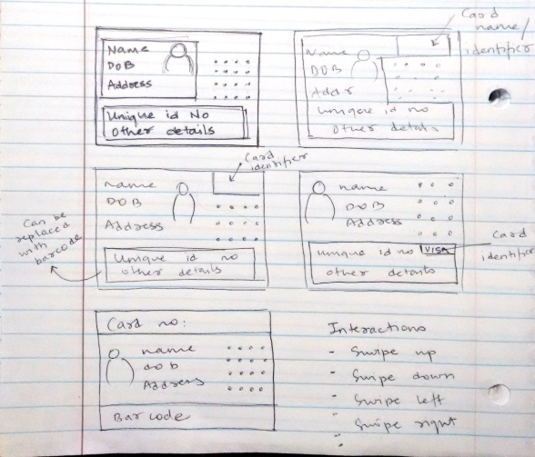 Name
DOB
Address
Unique id No
Other details
Card
name/
identifier
Name
DOB
Addr
Unique id no
Other details
Card
identifier
Name
DOB
Address
Unique id no
Other details
Can be
replaced
with
barcode
name
DOB
Address
Unique id no VISA
other details
Card
identifier
Card no:
name
dob
Address
Barcode
Interactions
- Swipe up
- Swipe down
- Swipe left
- Swipe right
-